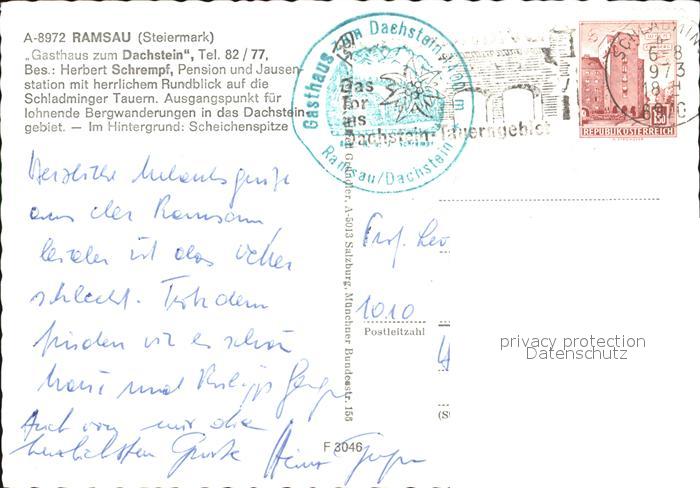 A-8972 RAMSAU (Steiermark)
„Gasthaus zum Dachstein“, Tel. 82 / 77,
Bes.: Herbert Schrempf, Pension und Jausen-
station mit herrlichem Rundblick auf die
Schladminger Tauern. Ausgangspunkt für
lohnende Bergwanderungen in das Dachstein-
gebiet. — Im Hintergrund: Scheichenspitze
Gasthaus zum Dachstein
Ramsau/Dachstein
Das
Tor
ins
Dachstein-Tauerngebiet
SCHLADMING
6-8
973
18
8970
1.50
REPUBLIK ÖSTERREICH
Herzliche Urlaubsgrüße
aus der Ramsau,
leider ist das Wetter
schlecht. Trotzdem
finden wir es schön
und Philipp
Auch von mir die
herzlichsten Grüße Heinz
A-5013 Salzburg, Münchner Bundesstr. 156
Prof. Leo
1010
Postleitzahl
privacy protection
Datenschutz
(St
F 3046